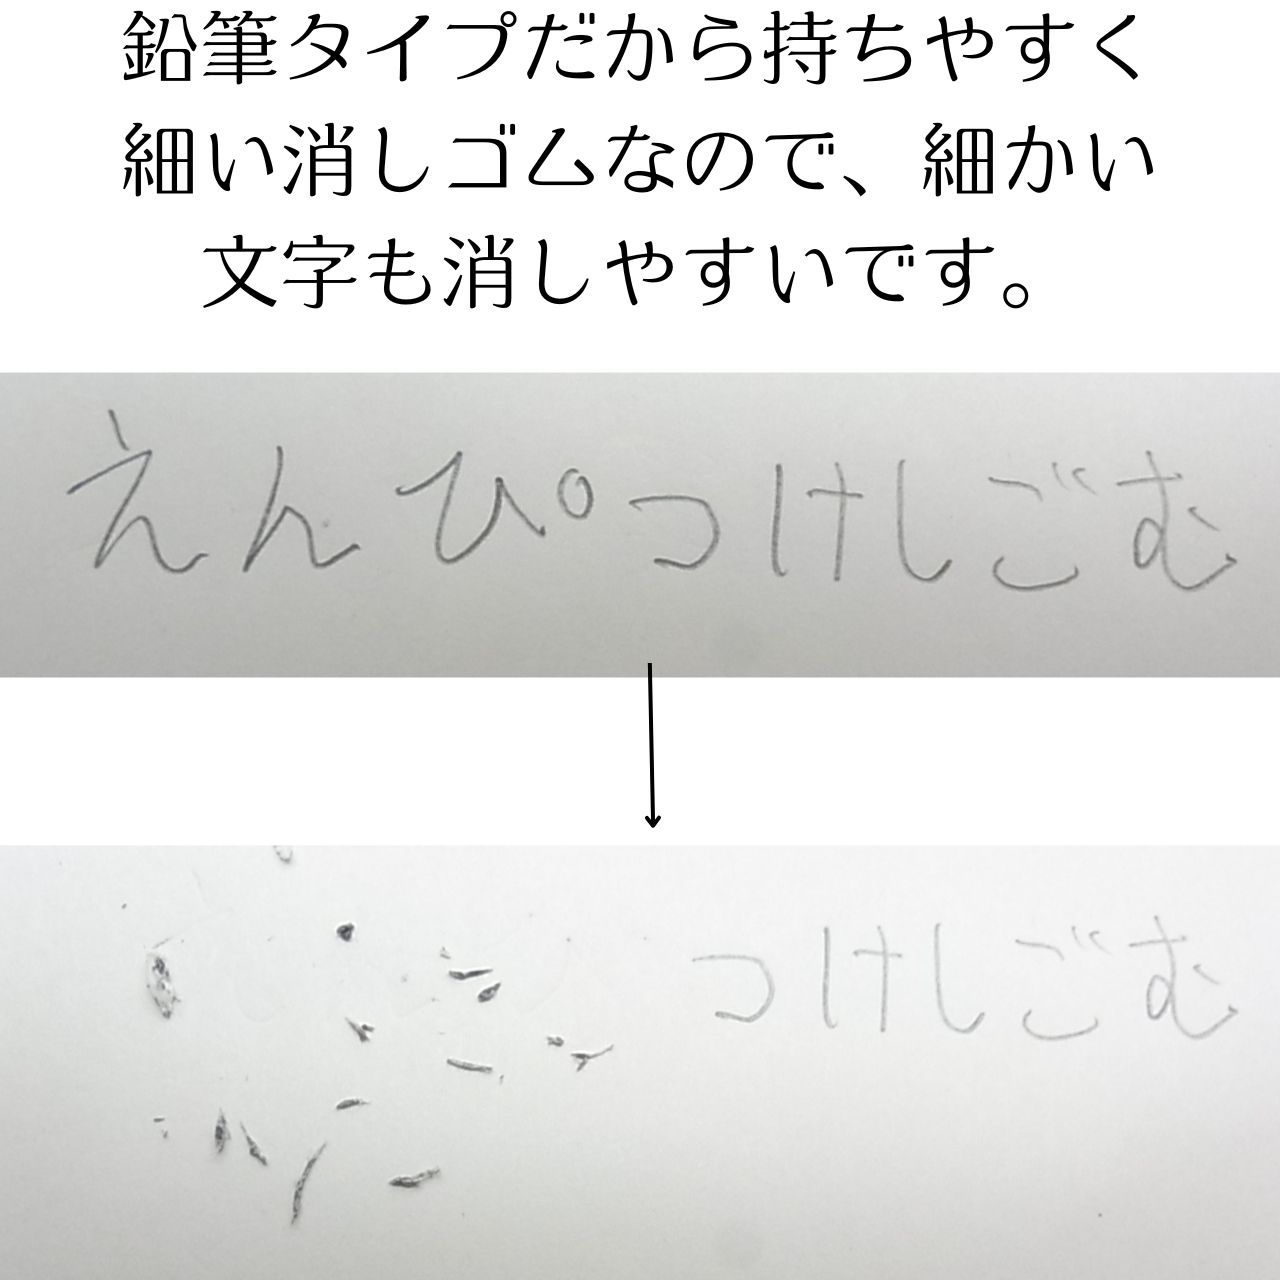 鉛筆タイプだから持ちやすく
細い消しゴムなので、細かい
文字も消しやすいです。
えんぴつけしごむ
つけしごむ